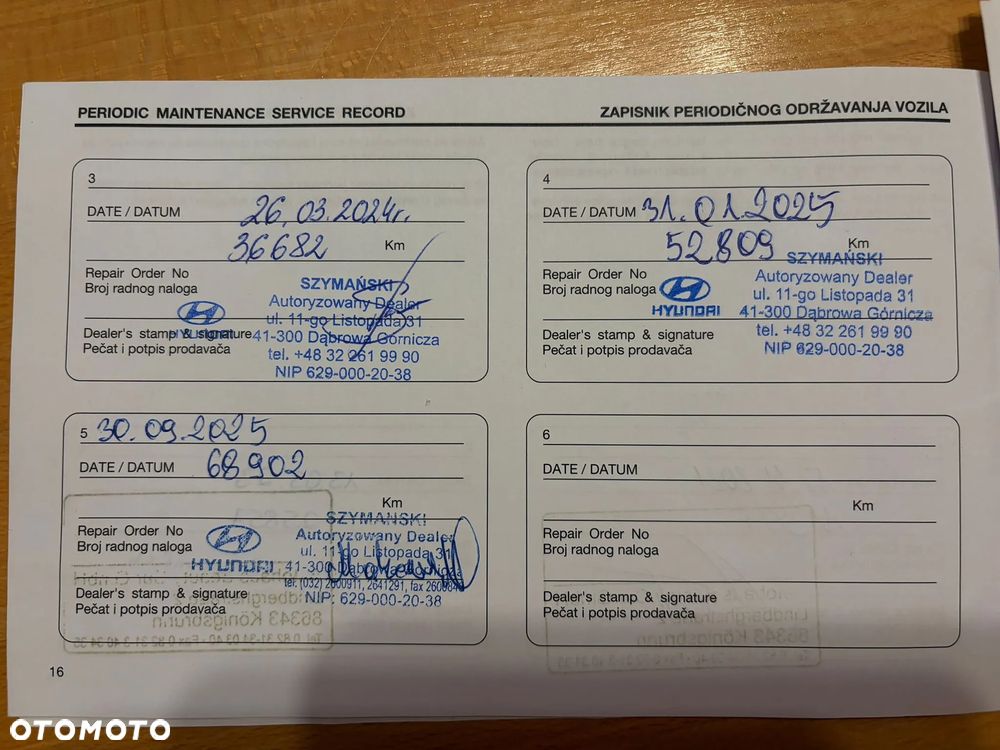 PERIODIC MAINTENANCE SERVICE RECORD
ZAPISNIK PERIODIČNOG ODRŽAVANJA VOZILA
3
DATE / DATUM 26.03.2024r.
36682 Km
Repair Order No
Broj radnog naloga
Dealer's stamp & signature
Pečat i potpis prodavača
HYUNDAI
SZYMAŃSKI
Autoryzowany Dealer
ul. 11-go Listopada 31
41-300 Dąbrowa Górnicza
tel. +48 32 261 99 90
NIP 629-000-20-38
4
DATE / DATUM 31.01.2025
52809 Km
Repair Order No
Broj radnog naloga
Dealer's stamp & signature
Pečat i potpis prodavača
HYUNDAI
SZYMAŃSKI
Autoryzowany Dealer
ul. 11-go Listopada 31
41-300 Dąbrowa Górnicza
tel. +48 32 261 99 90
NIP 629-000-20-38
5 30.09.2025
DATE / DATUM 68902
Km
Repair Order No
Broj radnog naloga
Dealer's stamp & signature
Pečat i potpis prodavača
HYUNDAI
SZYMAŃSKI
Autoryzowany Dealer
ul. 11-go Listopada 31
41-300 Dąbrowa Górnicza
tel. (032) 2600911, 2641291, fax
NIP: 629-000-20-38
86343 Königsbrunn
6
DATE / DATUM
Km
Repair Order No
Broj radnog naloga
Dealer's stamp & signature
Pečat i potpis prodavača
86343 Königsbrunn
16
OTOMOTO